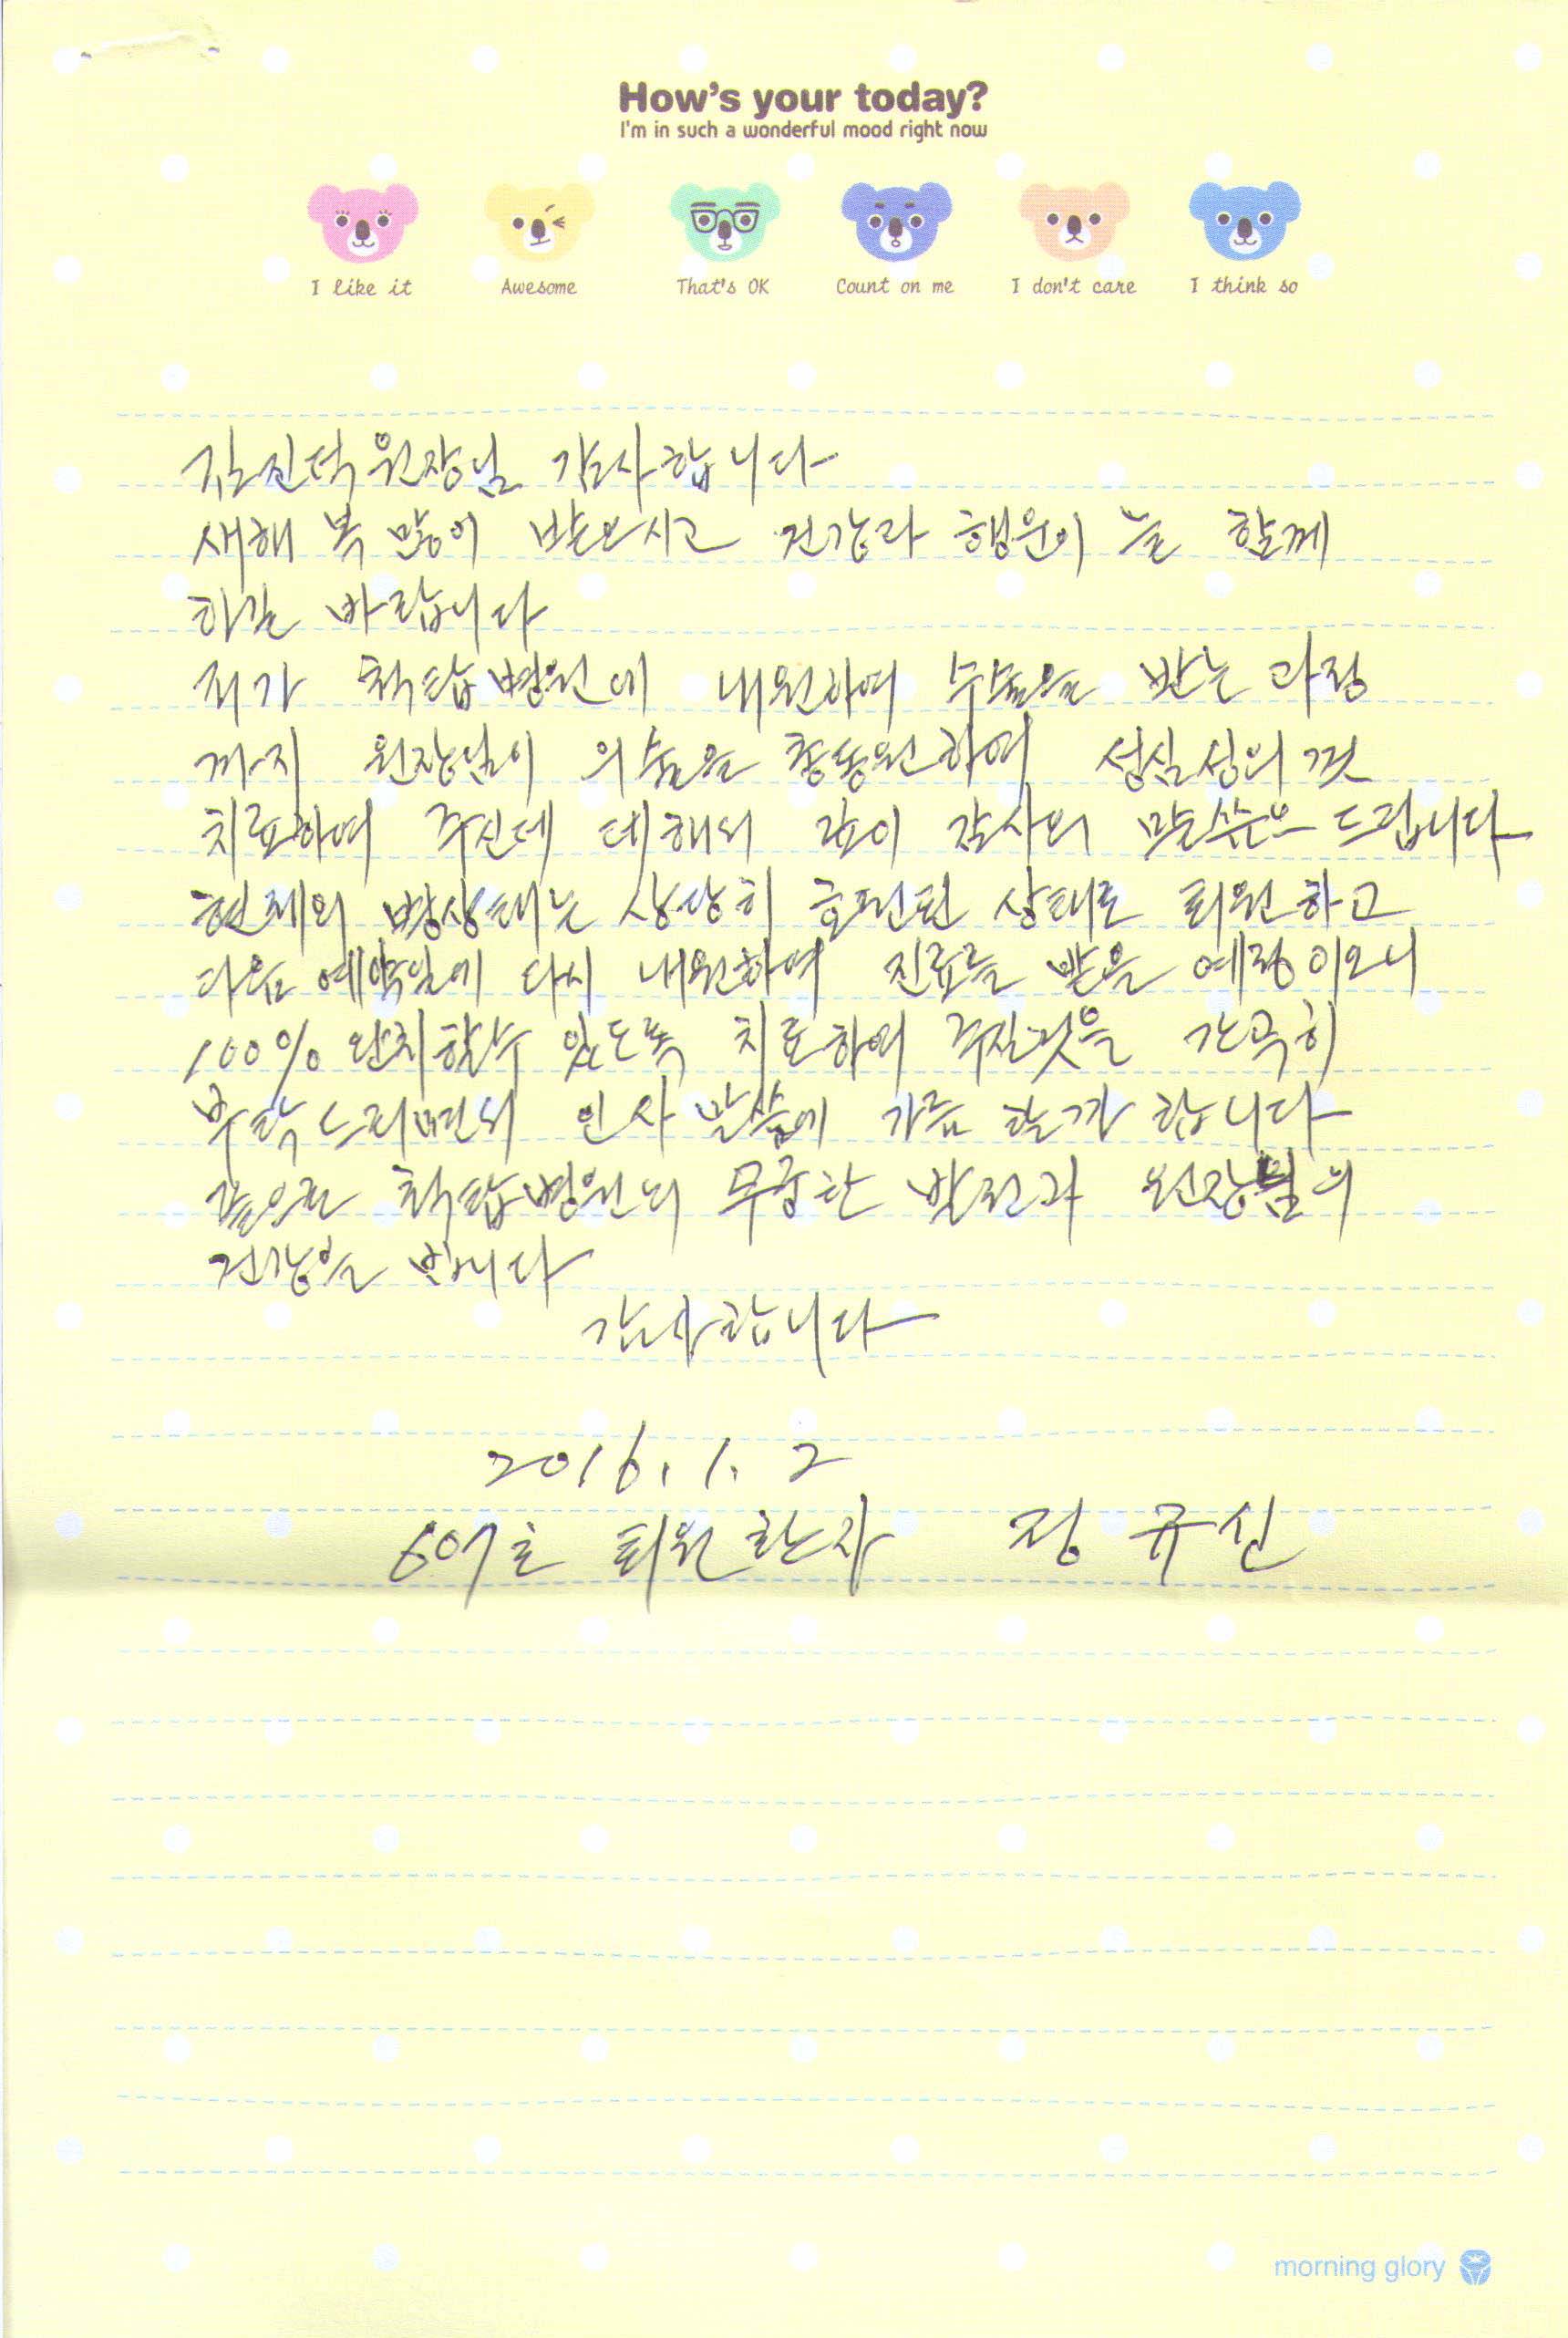 How's your today?
I'm in such a wonderful mood right now
I like it
Awesome
That's OK
Count on me
I don't care
I think so
김진덕 원장님 감사합니다
새해 복 많이 받으시고 건강과 행운이 늘 함께
하길 바랍니다
저가 척탑병원에 내원하여 수술을 받는 과정
까지 원장님이 의술을 총동원하여 성심성의 껏
치료하여 주신데 대해서 깊이 감사의 말씀으 드립니다
현제의 병상태는 상당히 호전된 상태로 퇴원하고
다음 예약일에 다시 내원하여 진료를 받을 예정이오니
100% 완치할수 있도록 치료하여 주실것을 간곡히
부탁드리면서 인사 말씀에 가름 할까 합니다
끝으로 척탑병원의 무궁한 발전과 원장님의
건강을 빕니다
감사합니다
2016. 1. 2
607호 퇴원환자 정규신
morning glory